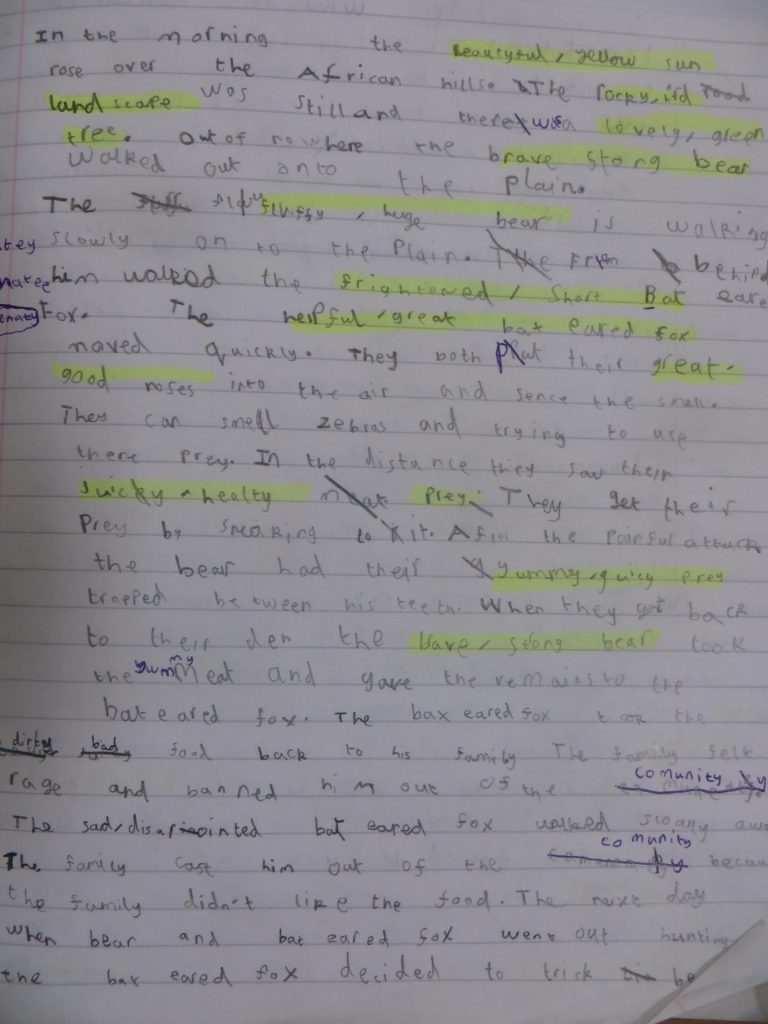 In the morning the beautyful, yellow sun
rose over the African hills. The rocky, rd road
landscape was still and there was a lovely, green
tree. Out of nowhere the brave stong bear
walked out onto the plain.
The fluffy, huge bear is walking
slowly on to the plain. From behind
him walked the frightened, short Bat eare
Fox. The helpful, great bax eared fox
moved quickly. They both put their great.
good noses into the air and sence the smell.
They can smell zebras and trying to use
there prey. In the distance they saw their
juicky, healty prey. They get their
prey by sneaking to it. After the painful attack
the bear had their yummy, juicy prey
trapped between his teeth. When they got back
to their den the bave, stong bear took
the yummy meat and gave the remains to the
bat eared fox. The bax eared fox took the
dirty bad food back to his family The family felt
rage and banned him out of the comunity
The sad, disapointed bat eared fox walked slowly awa
The family cast him out of the comunity becau
the family didn't like the food. The next day
when bear and bat eared fox went out hunting
the bax eared fox decided to trick be